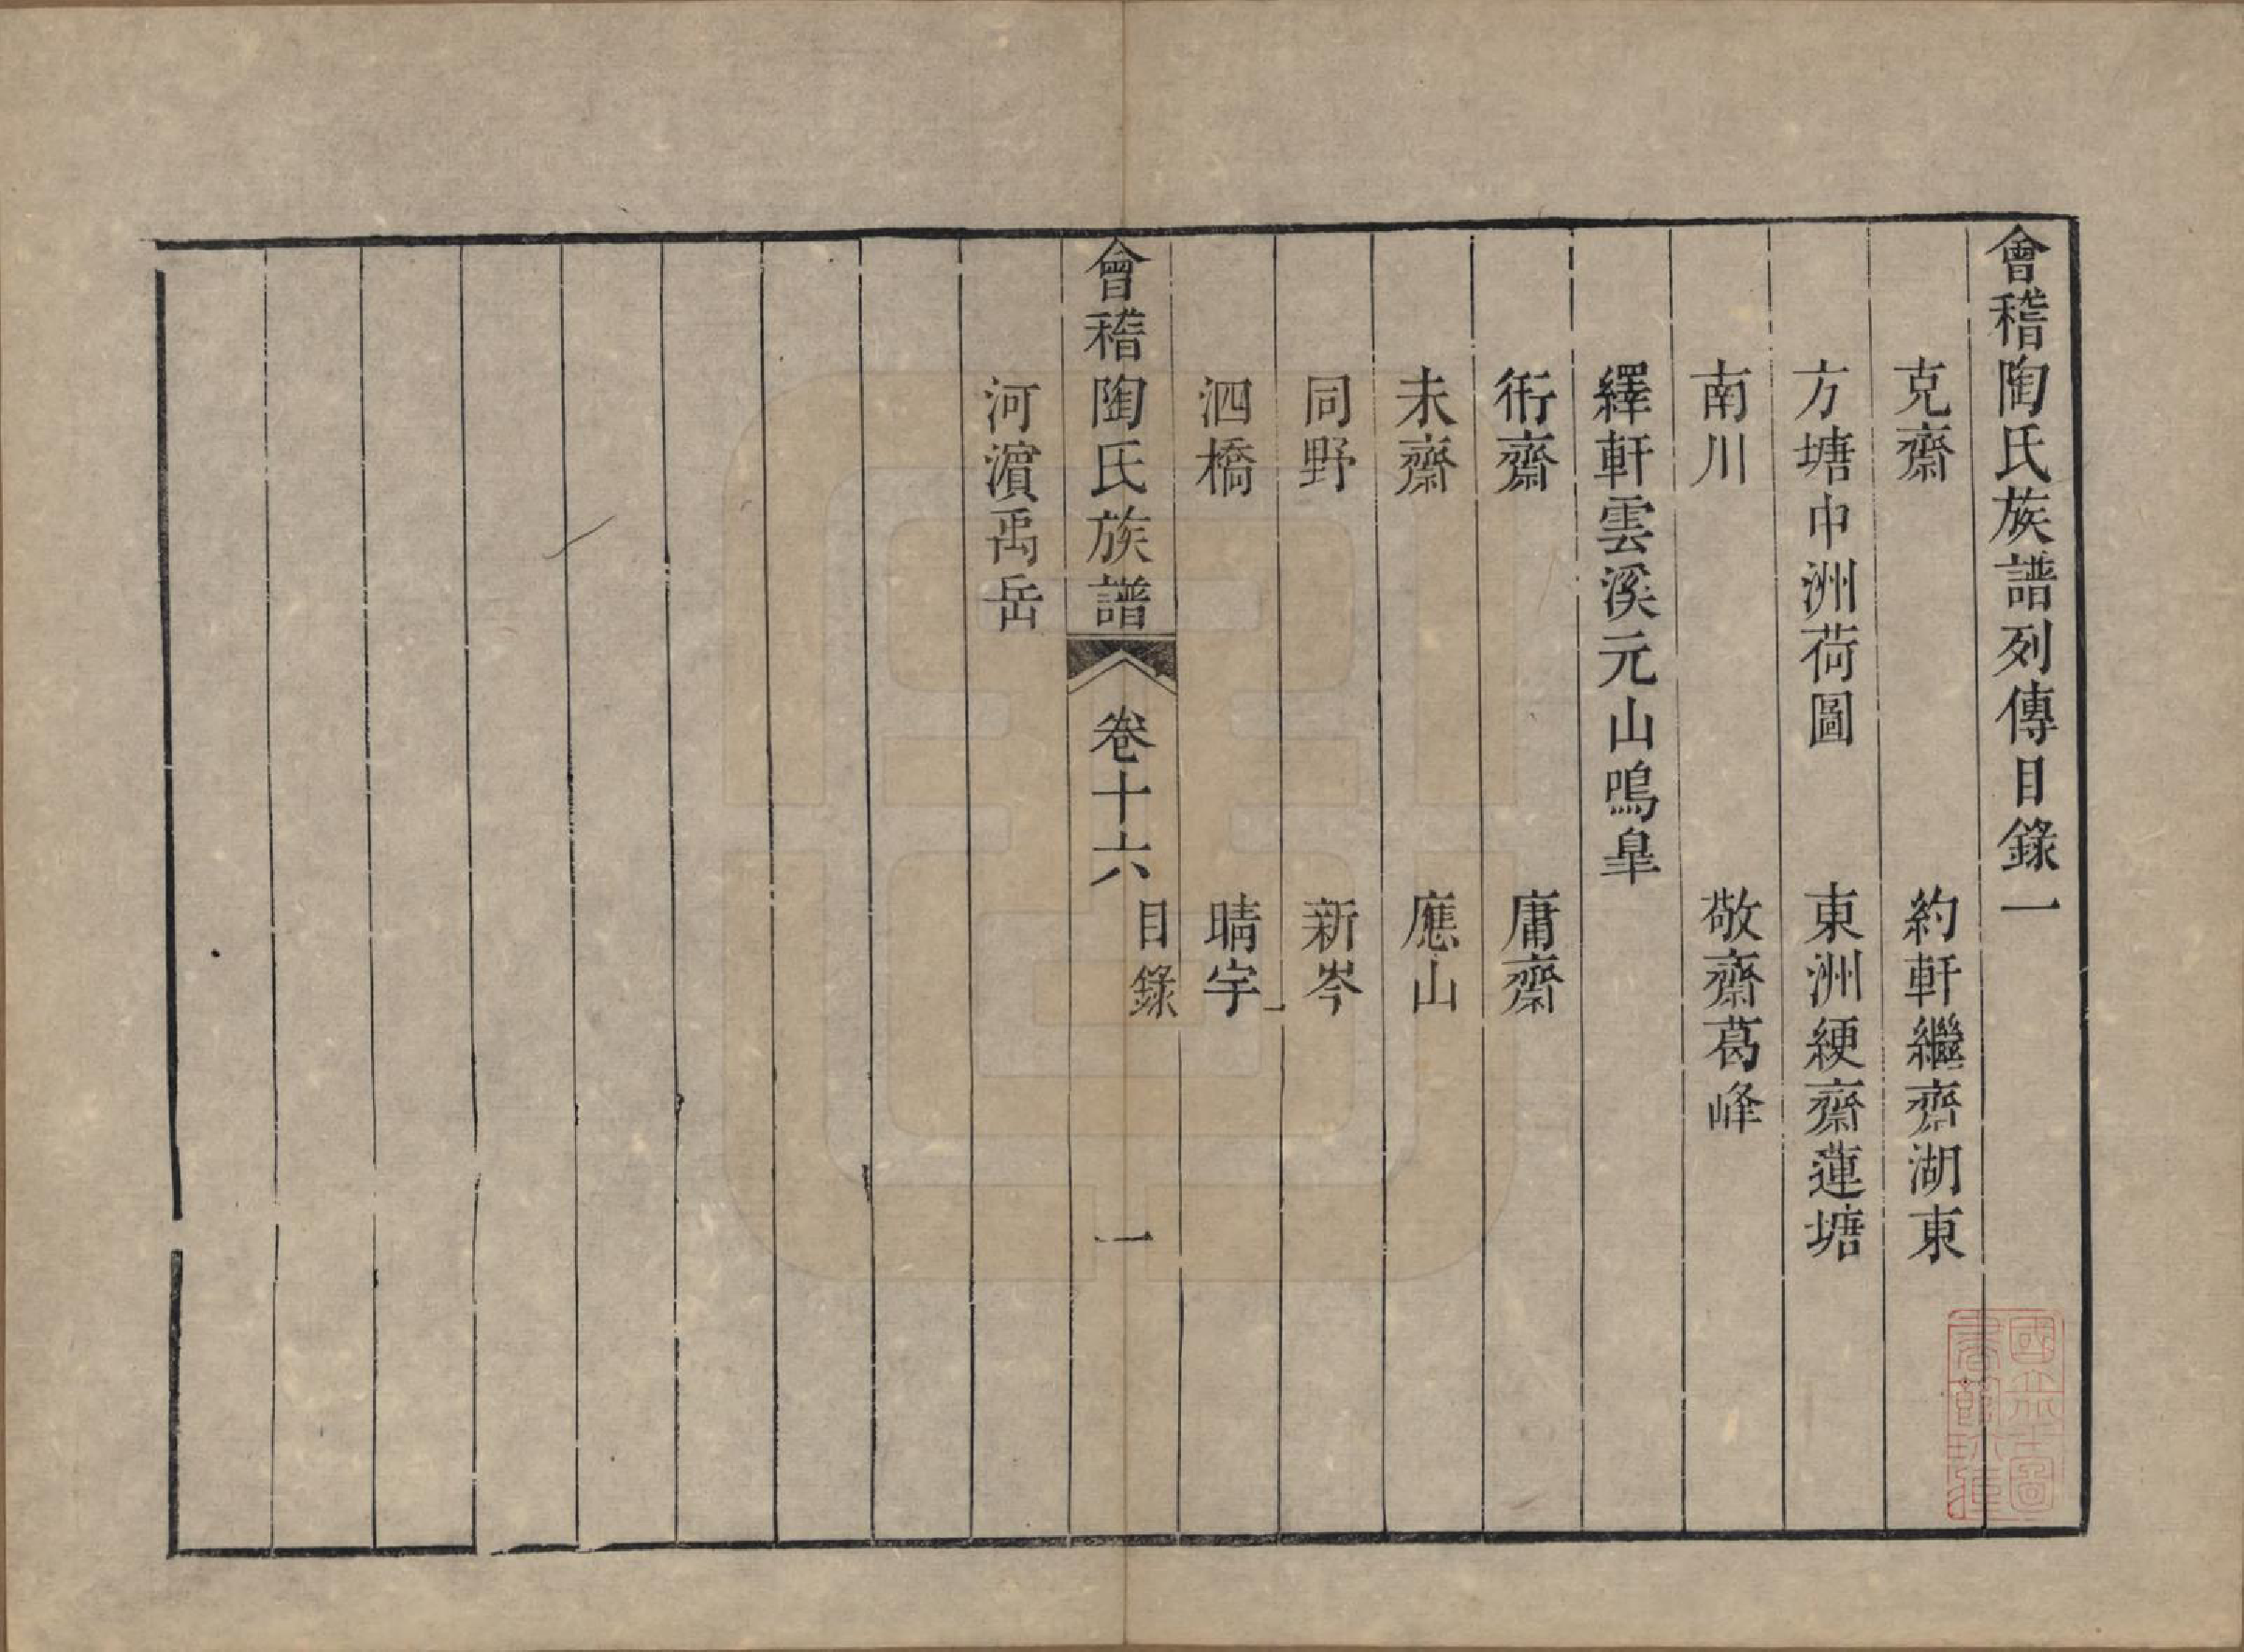 會稽陶氏族譜列傳目錄一
克齋　約軒繼齋湖東
方塘巾洲荷圖　東洲綆齋蓮塘
南川　敬齋葛峰
繹軒雲溪元山鳴臯
衎齋　庸齋
未齋　應山
同野　新岑
泗橋　晴宇
會稽陶氏族譜　卷十六　目錄　一
河濵禹岳